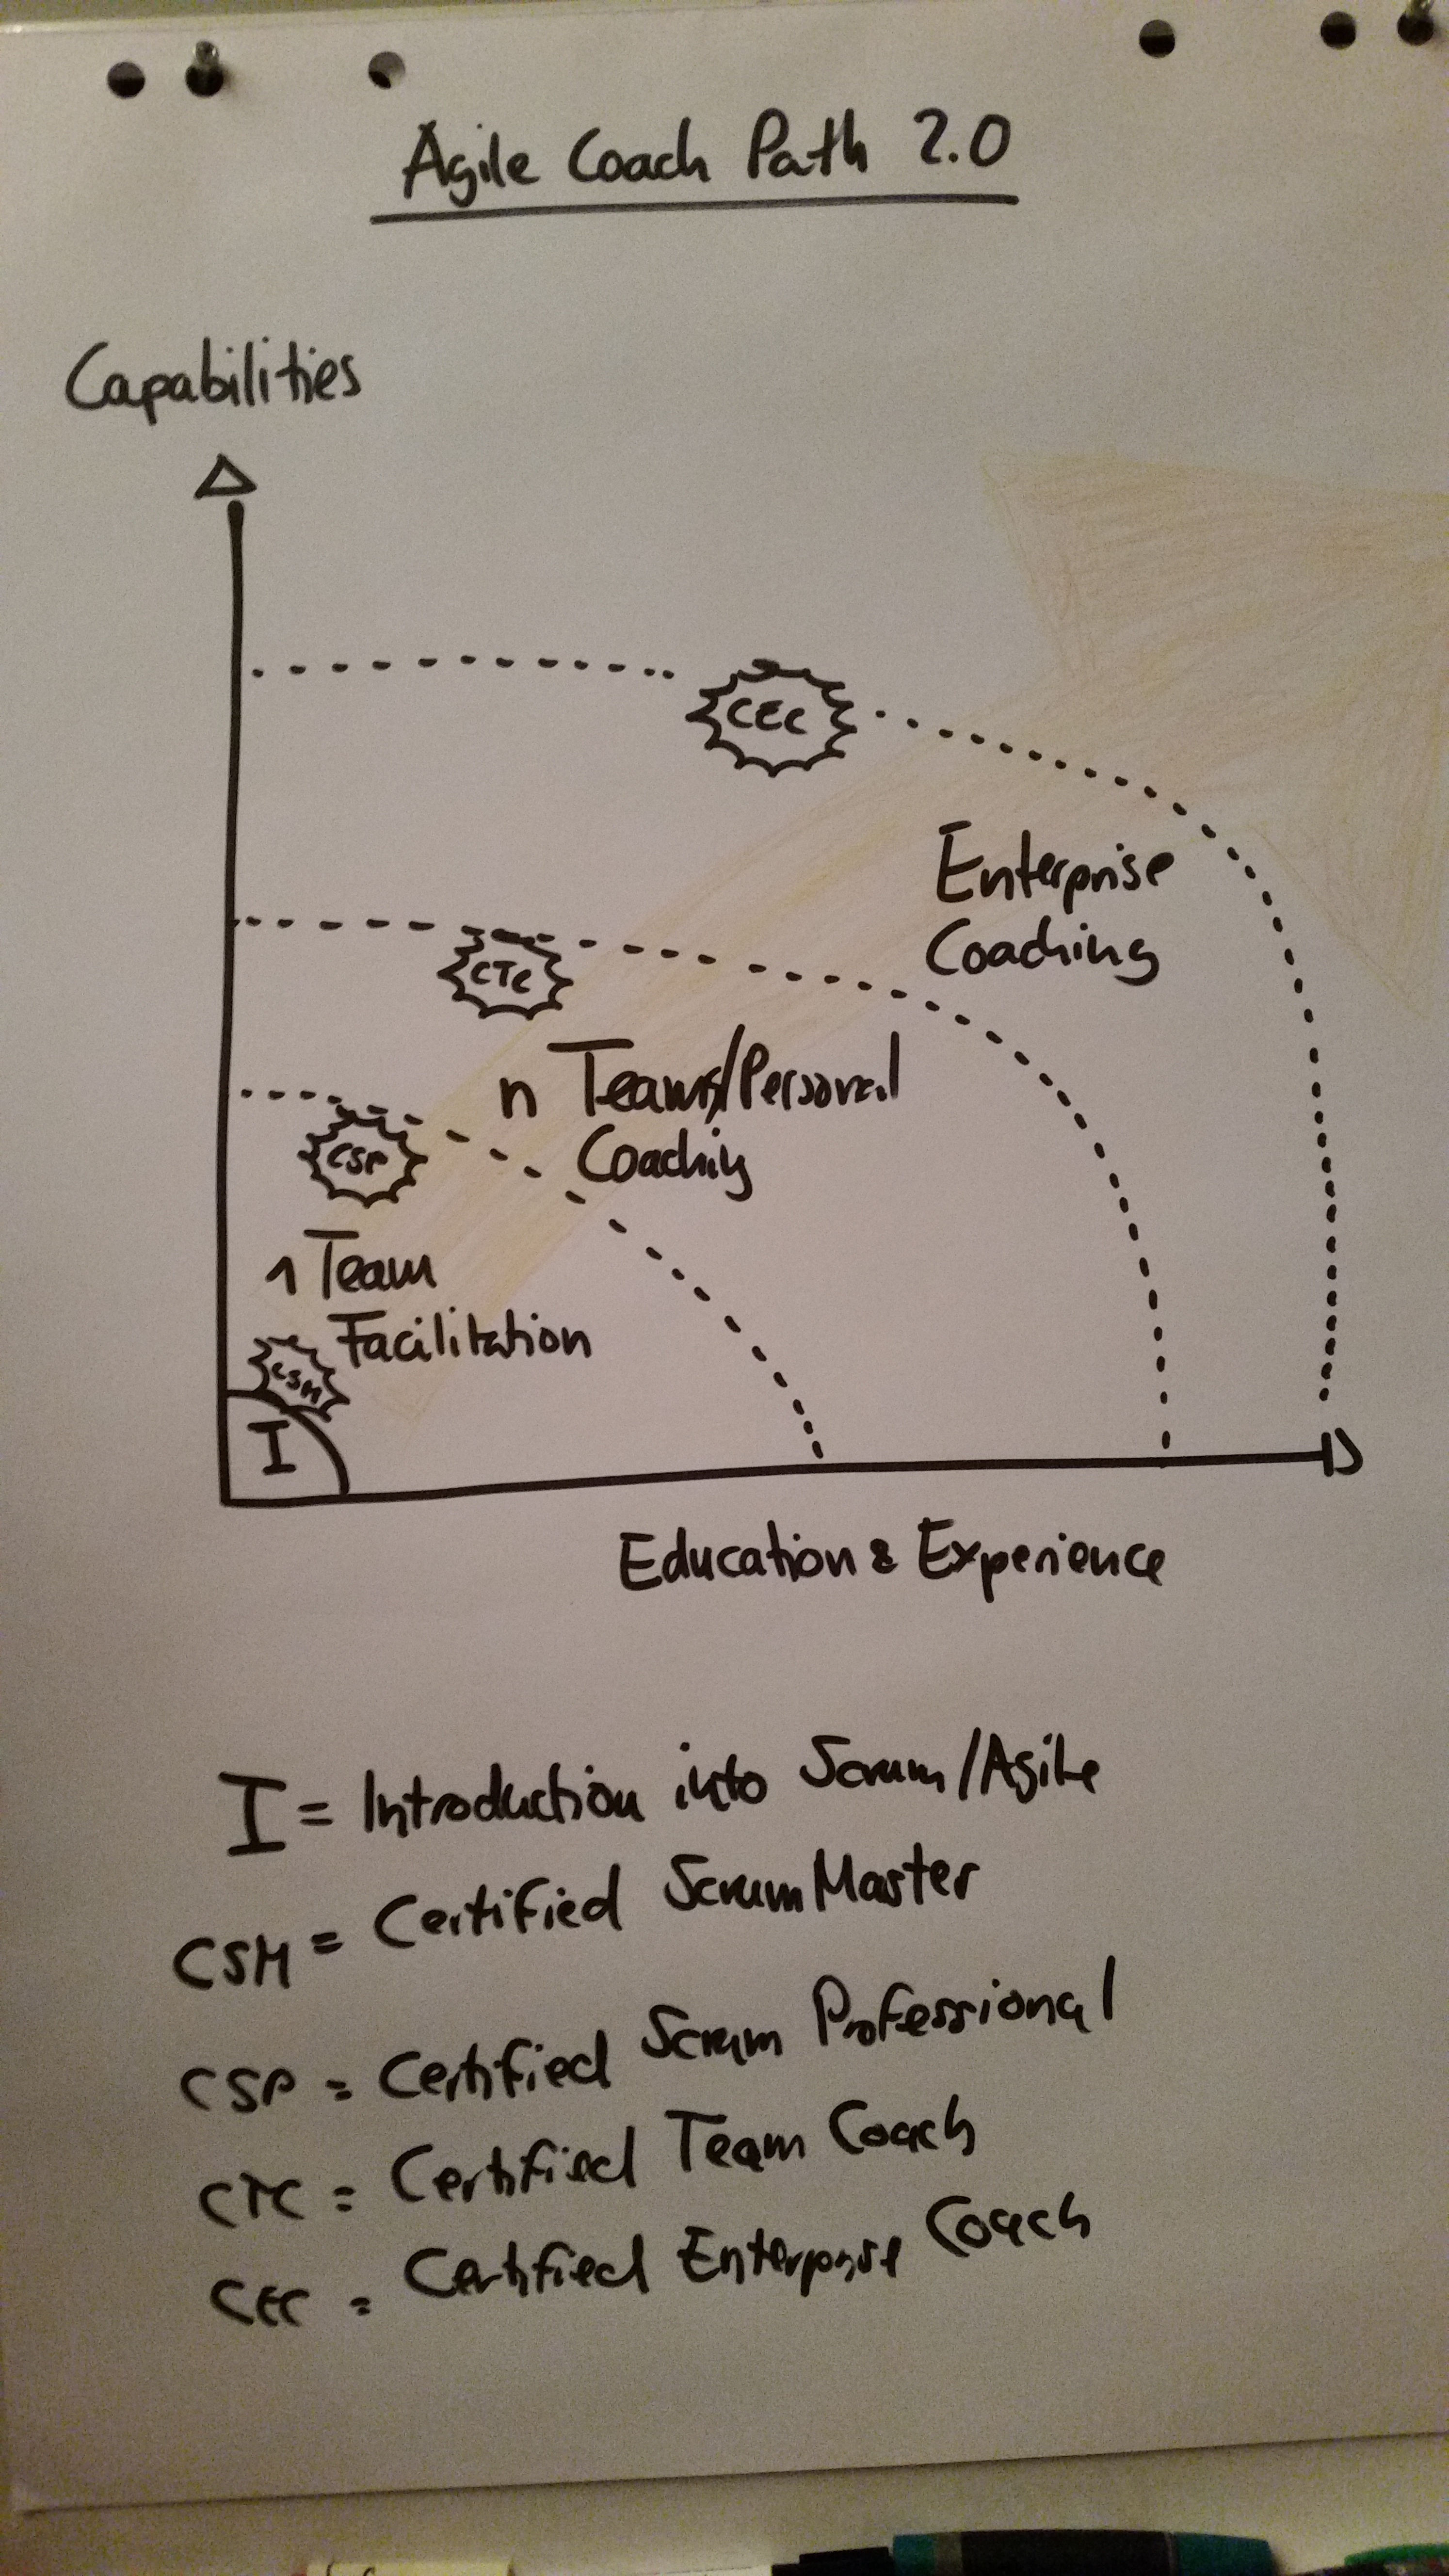 Agile Coach Path 2.0
Capabilities
CEC
Enterprise
Coaching
CTC
n Teams/Personal
Coaching
CSP
1 Team
Facilitation
CSM
I
Education & Experience
I = Introduction into Scrum/Agile
CSM = Certified ScrumMaster
CSP = Certified Scrum Professional
CTC = Certified Team Coach
CEC = Certified Enterprise Coach